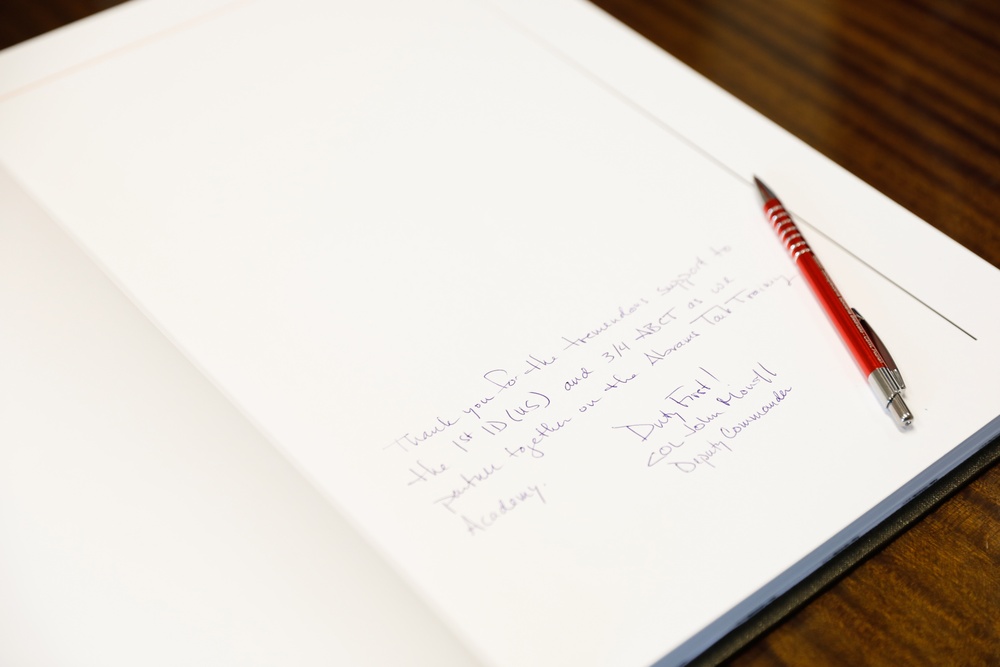 Thank you for the tremendous support to
the 1st ID (US) and 3/4 ABCT as we
partner together on the Abrams Tank Training
Academy.
Duty First!
COL John
Deputy Commander